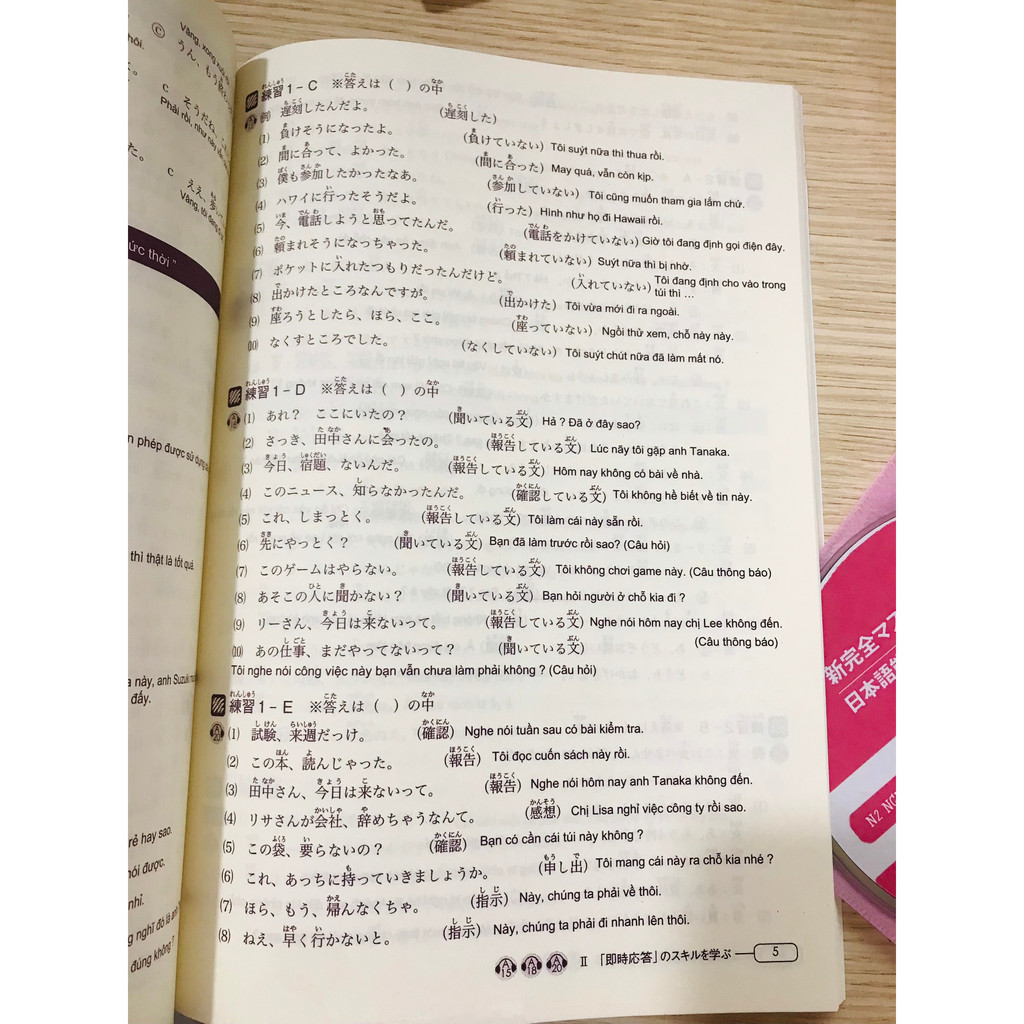 Vâng, xong
うん、もう
C そうだね、
C ええ、
ức thời "
n phép được sử dụng
thì thật là tốt quá
a này, anh Suzuki
đấy.
rẻ hay sao.
nói được.
nhỉ.
đúng không ?
練習1-C ※答えは( )の中
例) 遅刻したんだよ。 (遅刻した)
(1) 負けそうになったよ。 (負けていない) Tôi suýt nữa thì thua rồi.
(2) 間に合って、よかった。 (間に合った) May quá, vẫn còn kịp.
(3) 僕も参加したかったなあ。 (参加していない) Tôi cũng muốn tham gia lắm chứ.
(4) ハワイに行ったそうだよ。 (行った) Hình như họ đi Hawaii rồi.
(5) 今、電話しようと思ってたんだ。 (電話をかけていない) Giờ tôi đang định gọi điện đây.
(6) 頼まれそうになっちゃった。 (頼まれていない) Suýt nữa thì bị nhờ.
(7) ポケットに入れたつもりだったんだけど。 (入れていない) Tôi đang định cho vào trong
túi thì ...
(8) 出かけたところなんですが。 (出かけた) Tôi vừa mới đi ra ngoài.
(9) 座ろうとしたら、ほら、ここ。 (座っていない) Ngồi thử xem, chỗ này này.
(10) なくすところでした。 (なくしていない) Tôi suýt chút nữa đã làm mất nó.
練習1-D ※答えは( )の中
(1) あれ? ここにいたの? (聞いている文) Hả ? Đã ở đây sao?
(2) さっき、田中さんに会ったの。 (報告している文) Lúc nãy tôi gặp anh Tanaka.
(3) 今日、宿題、ないんだ。 (報告している文) Hôm nay không có bài về nhà.
(4) このニュース、知らなかったんだ。 (確認している文) Tôi không hề biết về tin này.
(5) これ、しまっとく。 (報告している文) Tôi làm cái này sẵn rồi.
(6) 先にやっとく? (聞いている文) Bạn đã làm trước rồi sao? (Câu hỏi)
(7) このゲームはやらない。 (報告している文) Tôi không chơi game này. (Câu thông báo)
(8) あそこの人に聞かない? (聞いている文) Bạn hỏi người ở chỗ kia đi ?
(9) リーさん、今日は来ないって。 (報告している文) Nghe nói hôm nay chị Lee không đến.
(Câu thông báo)
(10) あの仕事、まだやってないって? (聞いている文)
Tôi nghe nói công việc này bạn vẫn chưa làm phải không ? (Câu hỏi)
練習1-E ※答えは( )の中
(1) 試験、来週だっけ。 (確認) Nghe nói tuần sau có bài kiểm tra.
(2) この本、読んじゃった。 (報告) Tôi đọc cuốn sách này rồi.
(3) 田中さん、今日は来ないって。 (報告) Nghe nói hôm nay anh Tanaka không đến.
(4) リサさんが会社、辞めちゃうなんて。 (感想) Chị Lisa nghỉ việc công ty rồi sao.
(5) この袋、要らないの? (確認) Bạn có cần cái túi này không ?
(6) これ、あっちに持っていきましょうか。 (申し出) Tôi mang cái này ra chỗ kia nhé ?
(7) ほら、もう、帰んなくちゃ。 (指示) Này, chúng ta phải về thôi.
(8) ねえ、早く行かないと。 (指示) Này, chúng ta phải đi nhanh lên thôi.
A15 A18 A20 Ⅱ 「即時応答」のスキルを学ぶ 5
新完全マス
日本語能
N2